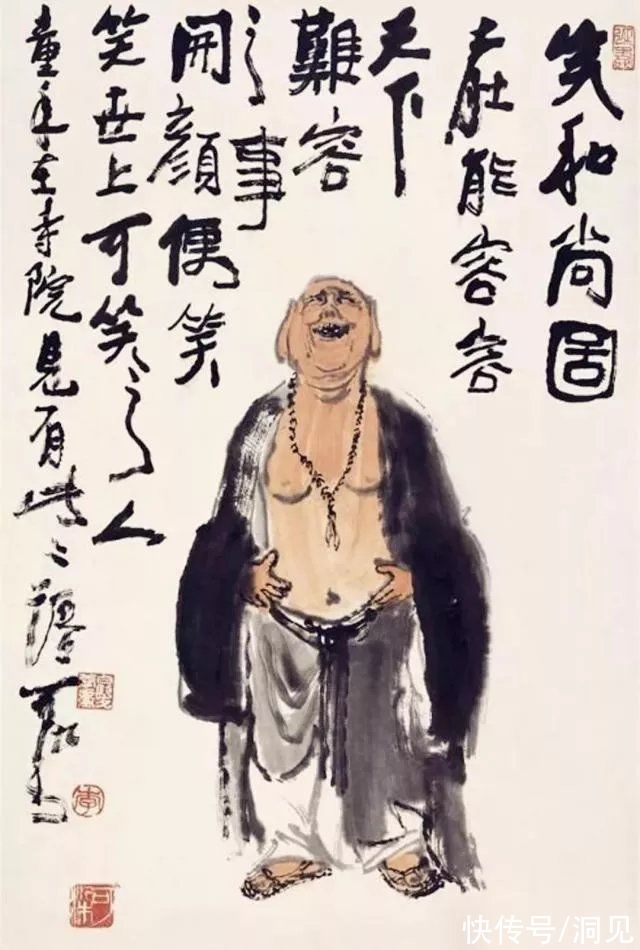 笑和尚圖
大肚能容容
天下
難容
之事
開顏便笑
笑世上可笑之人
童年在寺院見有此語 可染
可染
快传号/洞见